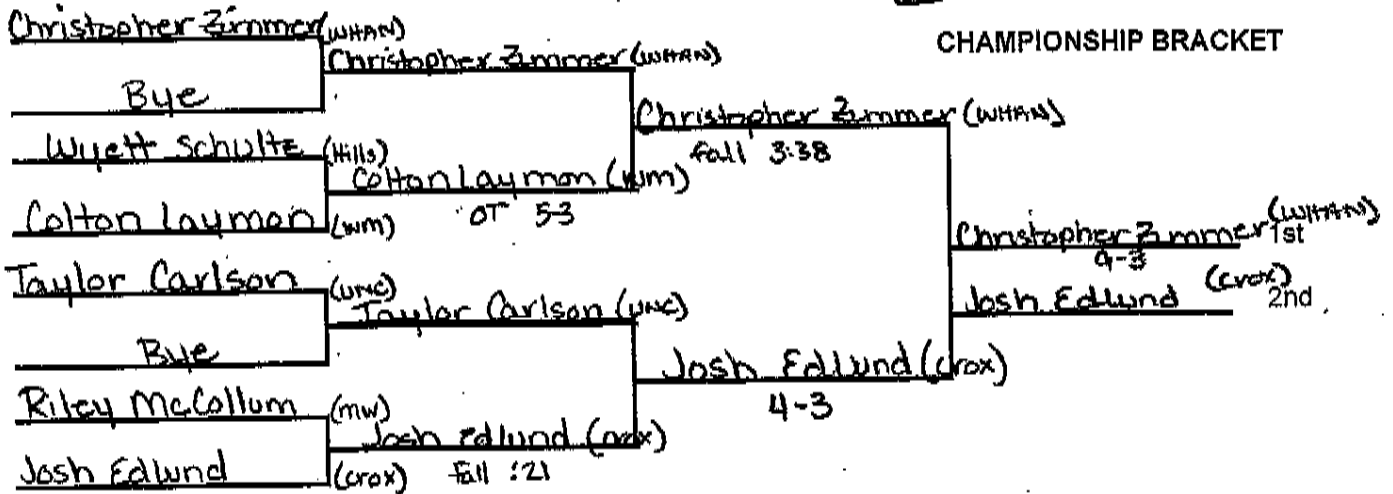 CHAMPIONSHIP BRACKET
Christopher Zimmer (WHAN)
Bye
Wyett Schultz (Hills)
Colton Laymon (wm)
Taylor Carlson (UNC)
Bye
Riley McCollum (mw)
Josh Edlund (crox)
Christopher Zimmer (WHAN)
Colton Laymon (wm)
OT 5-3
Taylor Carlson (UNC)
Josh Edlund (crox)
fall :21
Christopher Zimmer (WHAN)
fall 3:38
Josh Edlund (crox)
4-3
Christopher Zimmer (WHAN) 1st
Josh Edlund (crox) 2nd